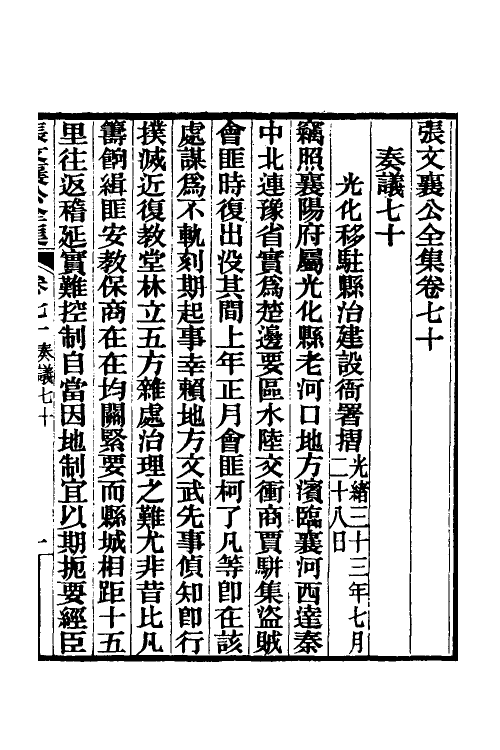 張文襄公全集卷七十
奏議七十
光化移駐縣治建設衙署摺光緒三十三年七月二十八日
竊照襄陽府屬光化縣老河口地方濱臨襄河西達秦
中北連豫省實爲楚邊要區水陸交衝商賈駢集盜賊
會匪時復出没其間上年正月會匪柯了凡等卽在該
處謀爲不軌刻期起事幸賴地方文武先事偵知卽行
撲滅近復教堂林立五方雜處治理之難尤非昔比凡
籌餉緝匪安教保商在在均關緊要而縣城相距十五
里往返稽延實難控制自當因地制宜以期扼要經臣
張文襄公全集 卷七十 奏議七十 一